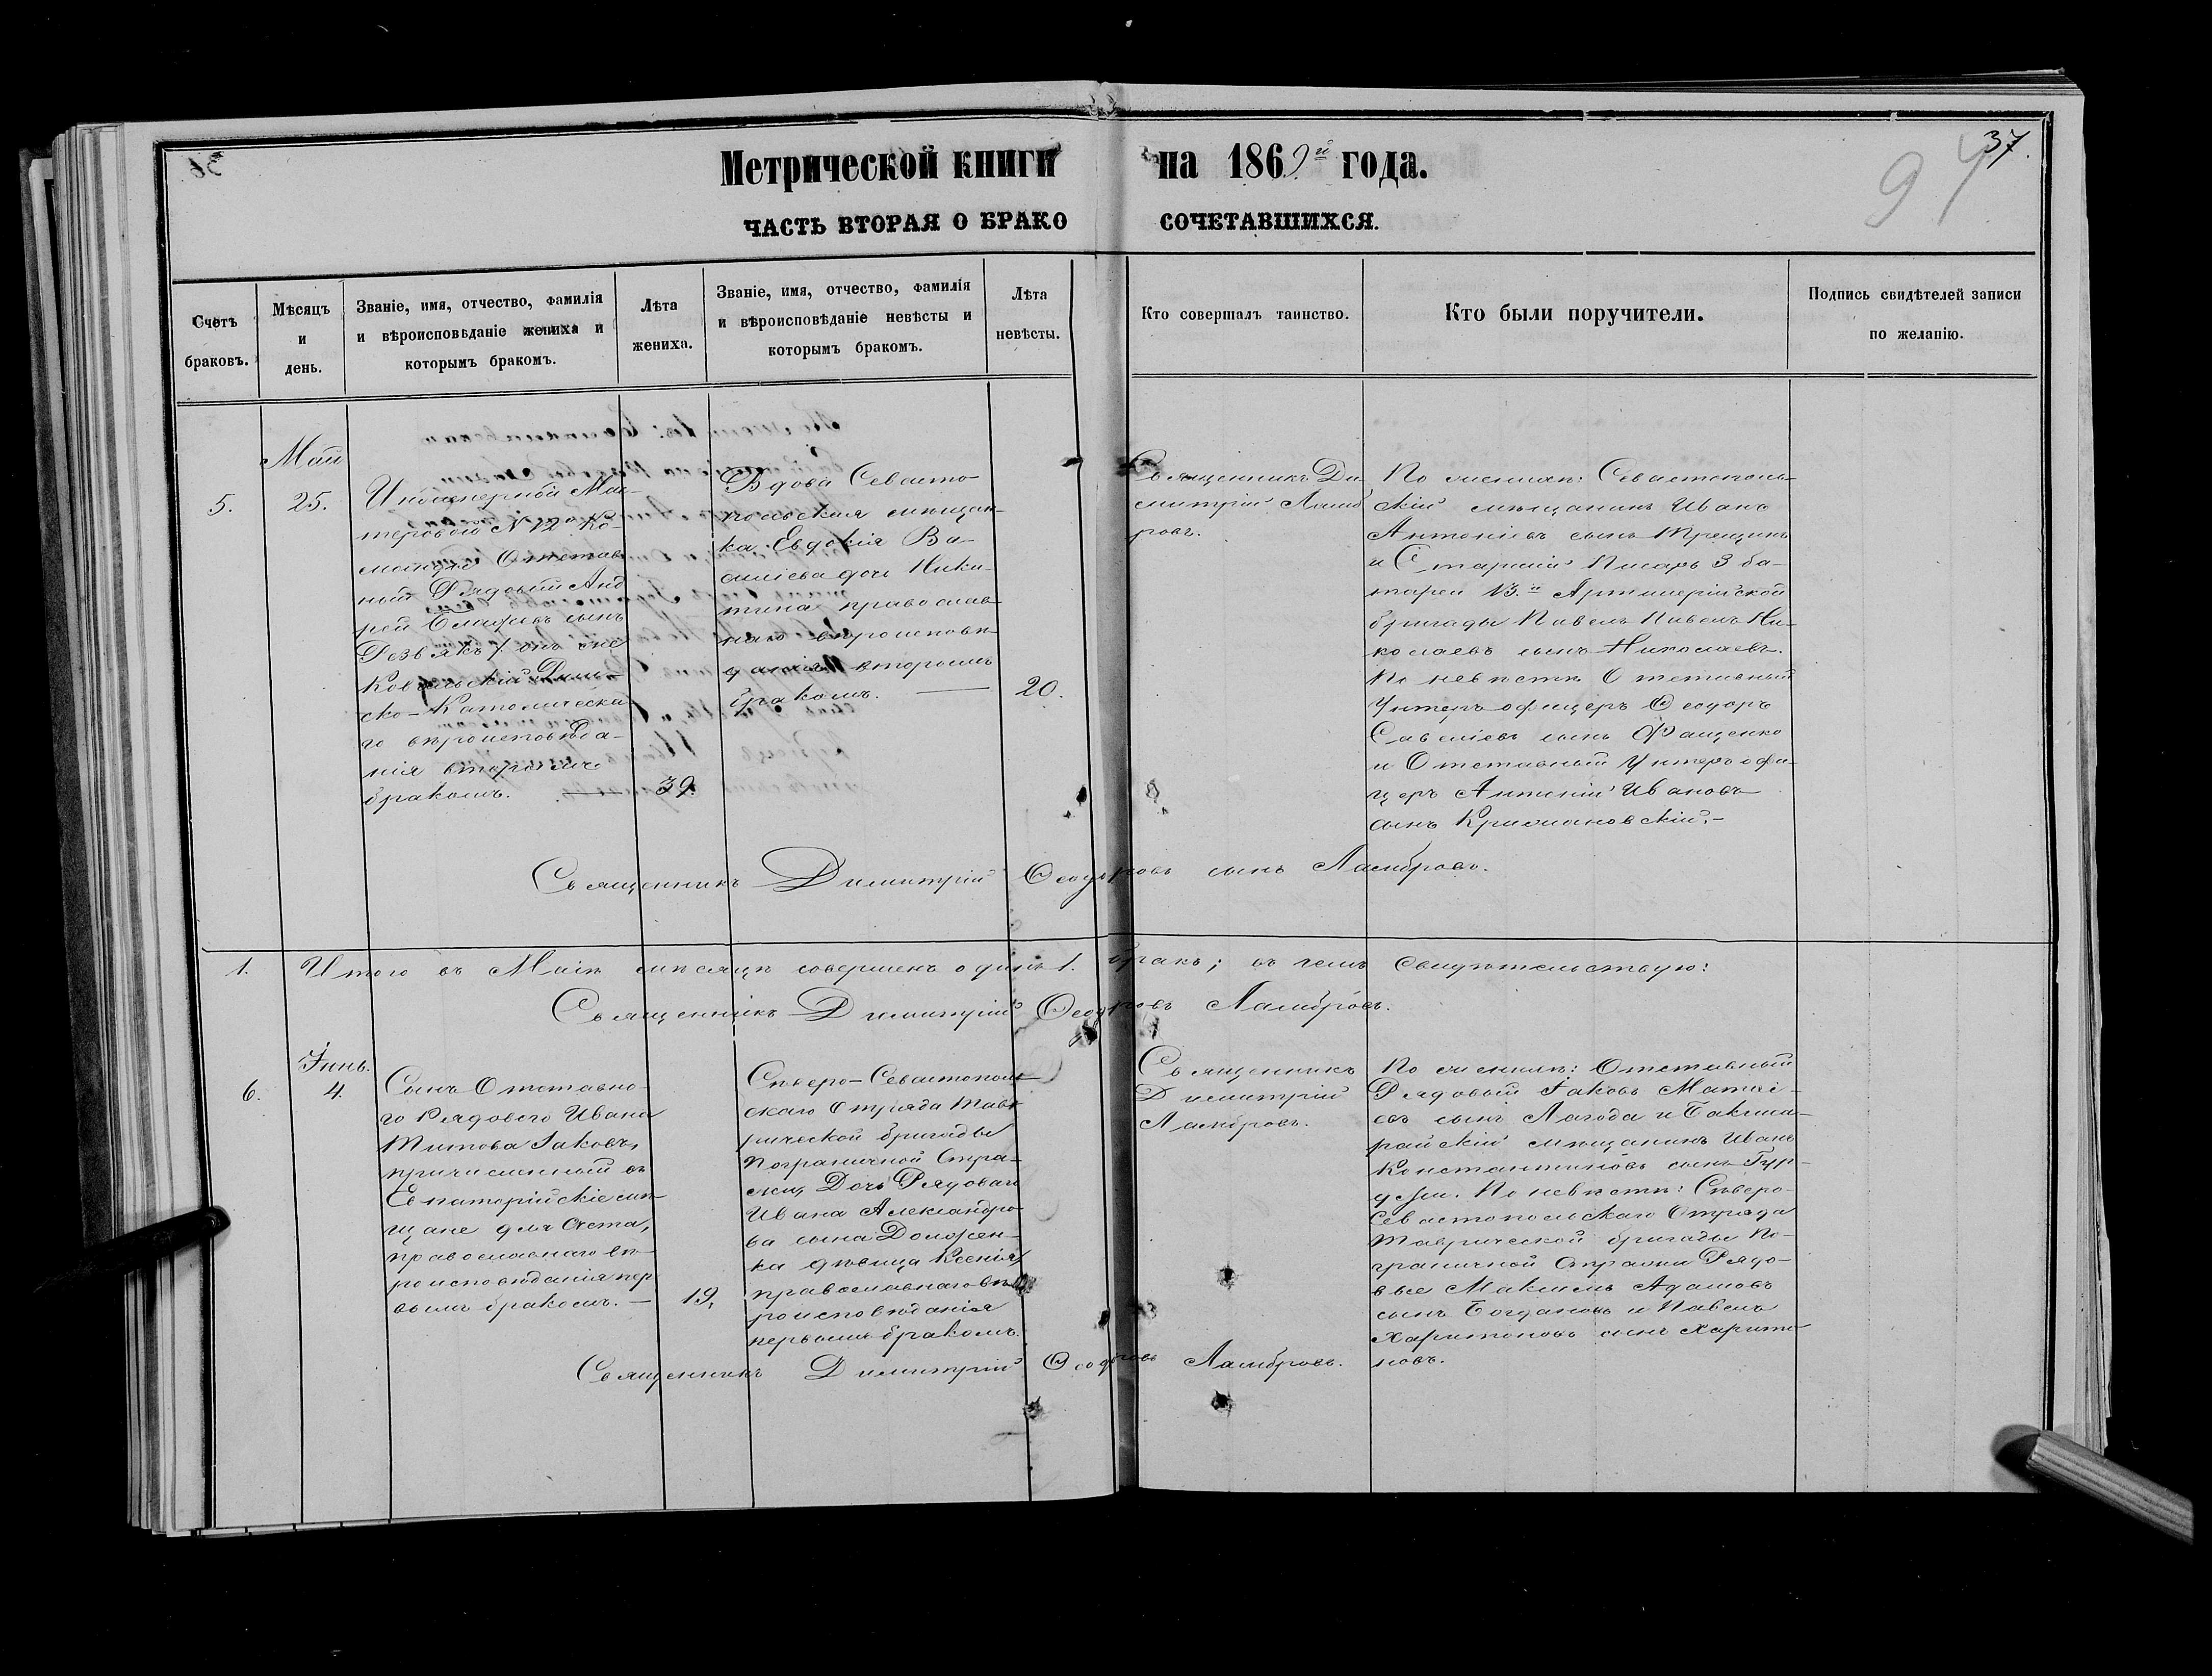 37.
94
Метрической книги на 1869й года.
ЧАСТЬ ВТОРАЯ О БРАКОСОЧЕТАВШИХСЯ.
Счетъ браковъ.
Мѣсяцъ и день.
Званіе, имя, отчество, фамилія и вѣроисповѣданіе жениха и которымъ бракомъ.
Лѣта жениха.
Званіе, имя, отчество, фамилія и вѣроисповѣданіе невѣсты и которымъ бракомъ.
Лѣта невѣсты.
Кто совершалъ таинство.
Кто были поручители.
Подпись свидѣтелей записи по желанію.
5.
Май
25.
Инженерной Мас-
теровой № 12го Ко-
манды Отстав
ный Рядовый Анд
рей сынъ
онъ же
Ковальскій Рим-
ско-Католическа
го вѣроисповѣда-
нія вторымъ
бракомъ. —
39.
Вдова Севасто-
польская мѣщан-
ка Евдокія Ва-
силіева дочь Ники-
тина православ-
наго вѣроисповѣ-
данія вторымъ
бракомъ. —
20.
Священникъ Ди-
митрій Ламб
ровъ.
По женихѣ: Севастополь-
скій мѣщанинъ Иванъ
Антоніевъ сынъ
и Старшій Писарь 3 ба-
тареи 13.й Артилерійской
бригады Павелъ Павелъ Ни-
колаевъ сынъ Николаевъ.
По невѣстѣ Отставный
Унтеръ офицеръ Ѳеодоръ
Савеліевъ сынъ Фащенко
и Отставный Унтеръ офи-
церъ Антоній Ивановъ
сынъ Крижановскій. —
Священникъ Димитрій Ѳеодоровъ сынъ Ламбровъ.
1. Итого въ Маѣ мѣсяцѣ совершенъ одинъ 1. бракъ; въ чемъ свидѣтельствую:
Священникъ Димитрій Ѳеодоровъ Ламбровъ.
6.
Іюнь.
4.
Сынъ Отставно-
го Рядового Ивана
Титова Іаковъ,
причисленный въ
Евпаторійскіе мѣ-
щане для счета,
православнаго вѣ-
роисповѣданія пер
вымъ бракомъ. —
19.
Сѣверо-Севастополь-
скаго Отряда Тав-
рической бригады
Пограничной Стра-
жи, Дочь Рядоваго
Ивана Александро-
ва сына Доложен-
ка дѣвица Ксенія,
православнаго вѣ-
роисповѣданія
первымъ бракомъ.
Священникъ
Димитрій
Ламбровъ.
По женихѣ: Отставный
Рядовый Іаковъ Матѳе-
евъ сынъ Лагода и Бакчиса-
райскій мѣщанинъ Иванъ
Константиновъ сынъ
По невѣстѣ: Сѣверо-
Севастопольскаго Отряда
Таврической бригады По-
граничной Стражи Рядо-
вые Максимъ Адамовъ
сынъ Богдановъ и Павелъ
Харитоновъ сынъ Харито-
новъ.
Священникъ Димитрій Ѳеодоровъ Ламбровъ.